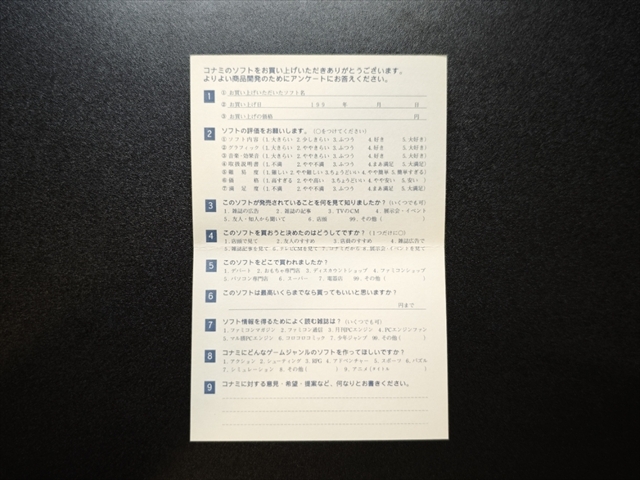 コナミのソフトをお買い上げいただきありがとうございます。
よりよい商品開発のためにアンケートにお答えください。
1 ① お買い上げいただいたソフト名
② お買い上げ日 199 年 月 日
③ お買い上げの価格 円
2 ソフトの評価をお願いします。(○をつけてください)
① ソフト内容 (1.大きらい 2.少しきらい 3.ふつう 4.好き 5.大好き)
② グラフィック (1.大きらい 2.ややきらい 3.ふつう 4.好き 5.大好き)
③ 音楽・効果音 (1.大きらい 2.ややきらい 3.ふつう 4.好き 5.大好き)
④ 取扱説明書 (1.不満 2.やや不満 3.ふつう 4.まあ満足 5.大満足)
⑤ 難易度 (1.難しい 2.やや難しい 3.ちょうどいい 4.やや簡単 5.簡単すぎる)
⑥ 価格 (1.高すぎる 2.やや高い 3.ちょうどいい 4.やや安い 5.安い)
⑦ 満足度 (1.不満 2.やや不満 3.ふつう 4.まあ満足 5.大満足)
3 このソフトが発売されていることを何を見て知りましたか?(いくつでも可)
1.雑誌の広告 2.雑誌の記事 3.TVのCM 4.展示会・イベント
5.友人・知人から聞いて 6.店頭 99.その他( )
4 このソフトを買おうと決めたのはどうしてですか?(1つだけに○)
1.店頭で見て 2.友人のすすめ 3.店員のすすめ 4.雑誌広告で
5.雑誌記事を見て 6.テレビCMを見て
5 このソフトをどこで買われましたか?
1.デパート 2.おもちゃ専門店 3.ディスカウントショップ 4.ファミコンショップ
5.パソコン専門店 6.スーパー 7.電器店 99.その他(
6 このソフトは最高いくらまでなら買ってもいいと思いますか?
円まで
7 ソフト情報を得るためによく読む雑誌は?(いくつでも可)
1.ファミコンマガジン 2.ファミコン通信 3.月刊PCエンジン 4.PCエンジンファン
5.マル勝PCエンジン 6.コロコロコミック 7.少年ジャンプ 99.その他(
8 コナミにどんなゲームジャンルのソフトを作ってほしいですか?
1.アクション 2.シューティング 3.RPG 4.アドベンチャー 5.スポーツ 6.パズル
7.シミュレーション 8.その他( ) 9.アニメ(タイトル )
9 コナミに対する意見・希望・提案など、何なりとお書きください。